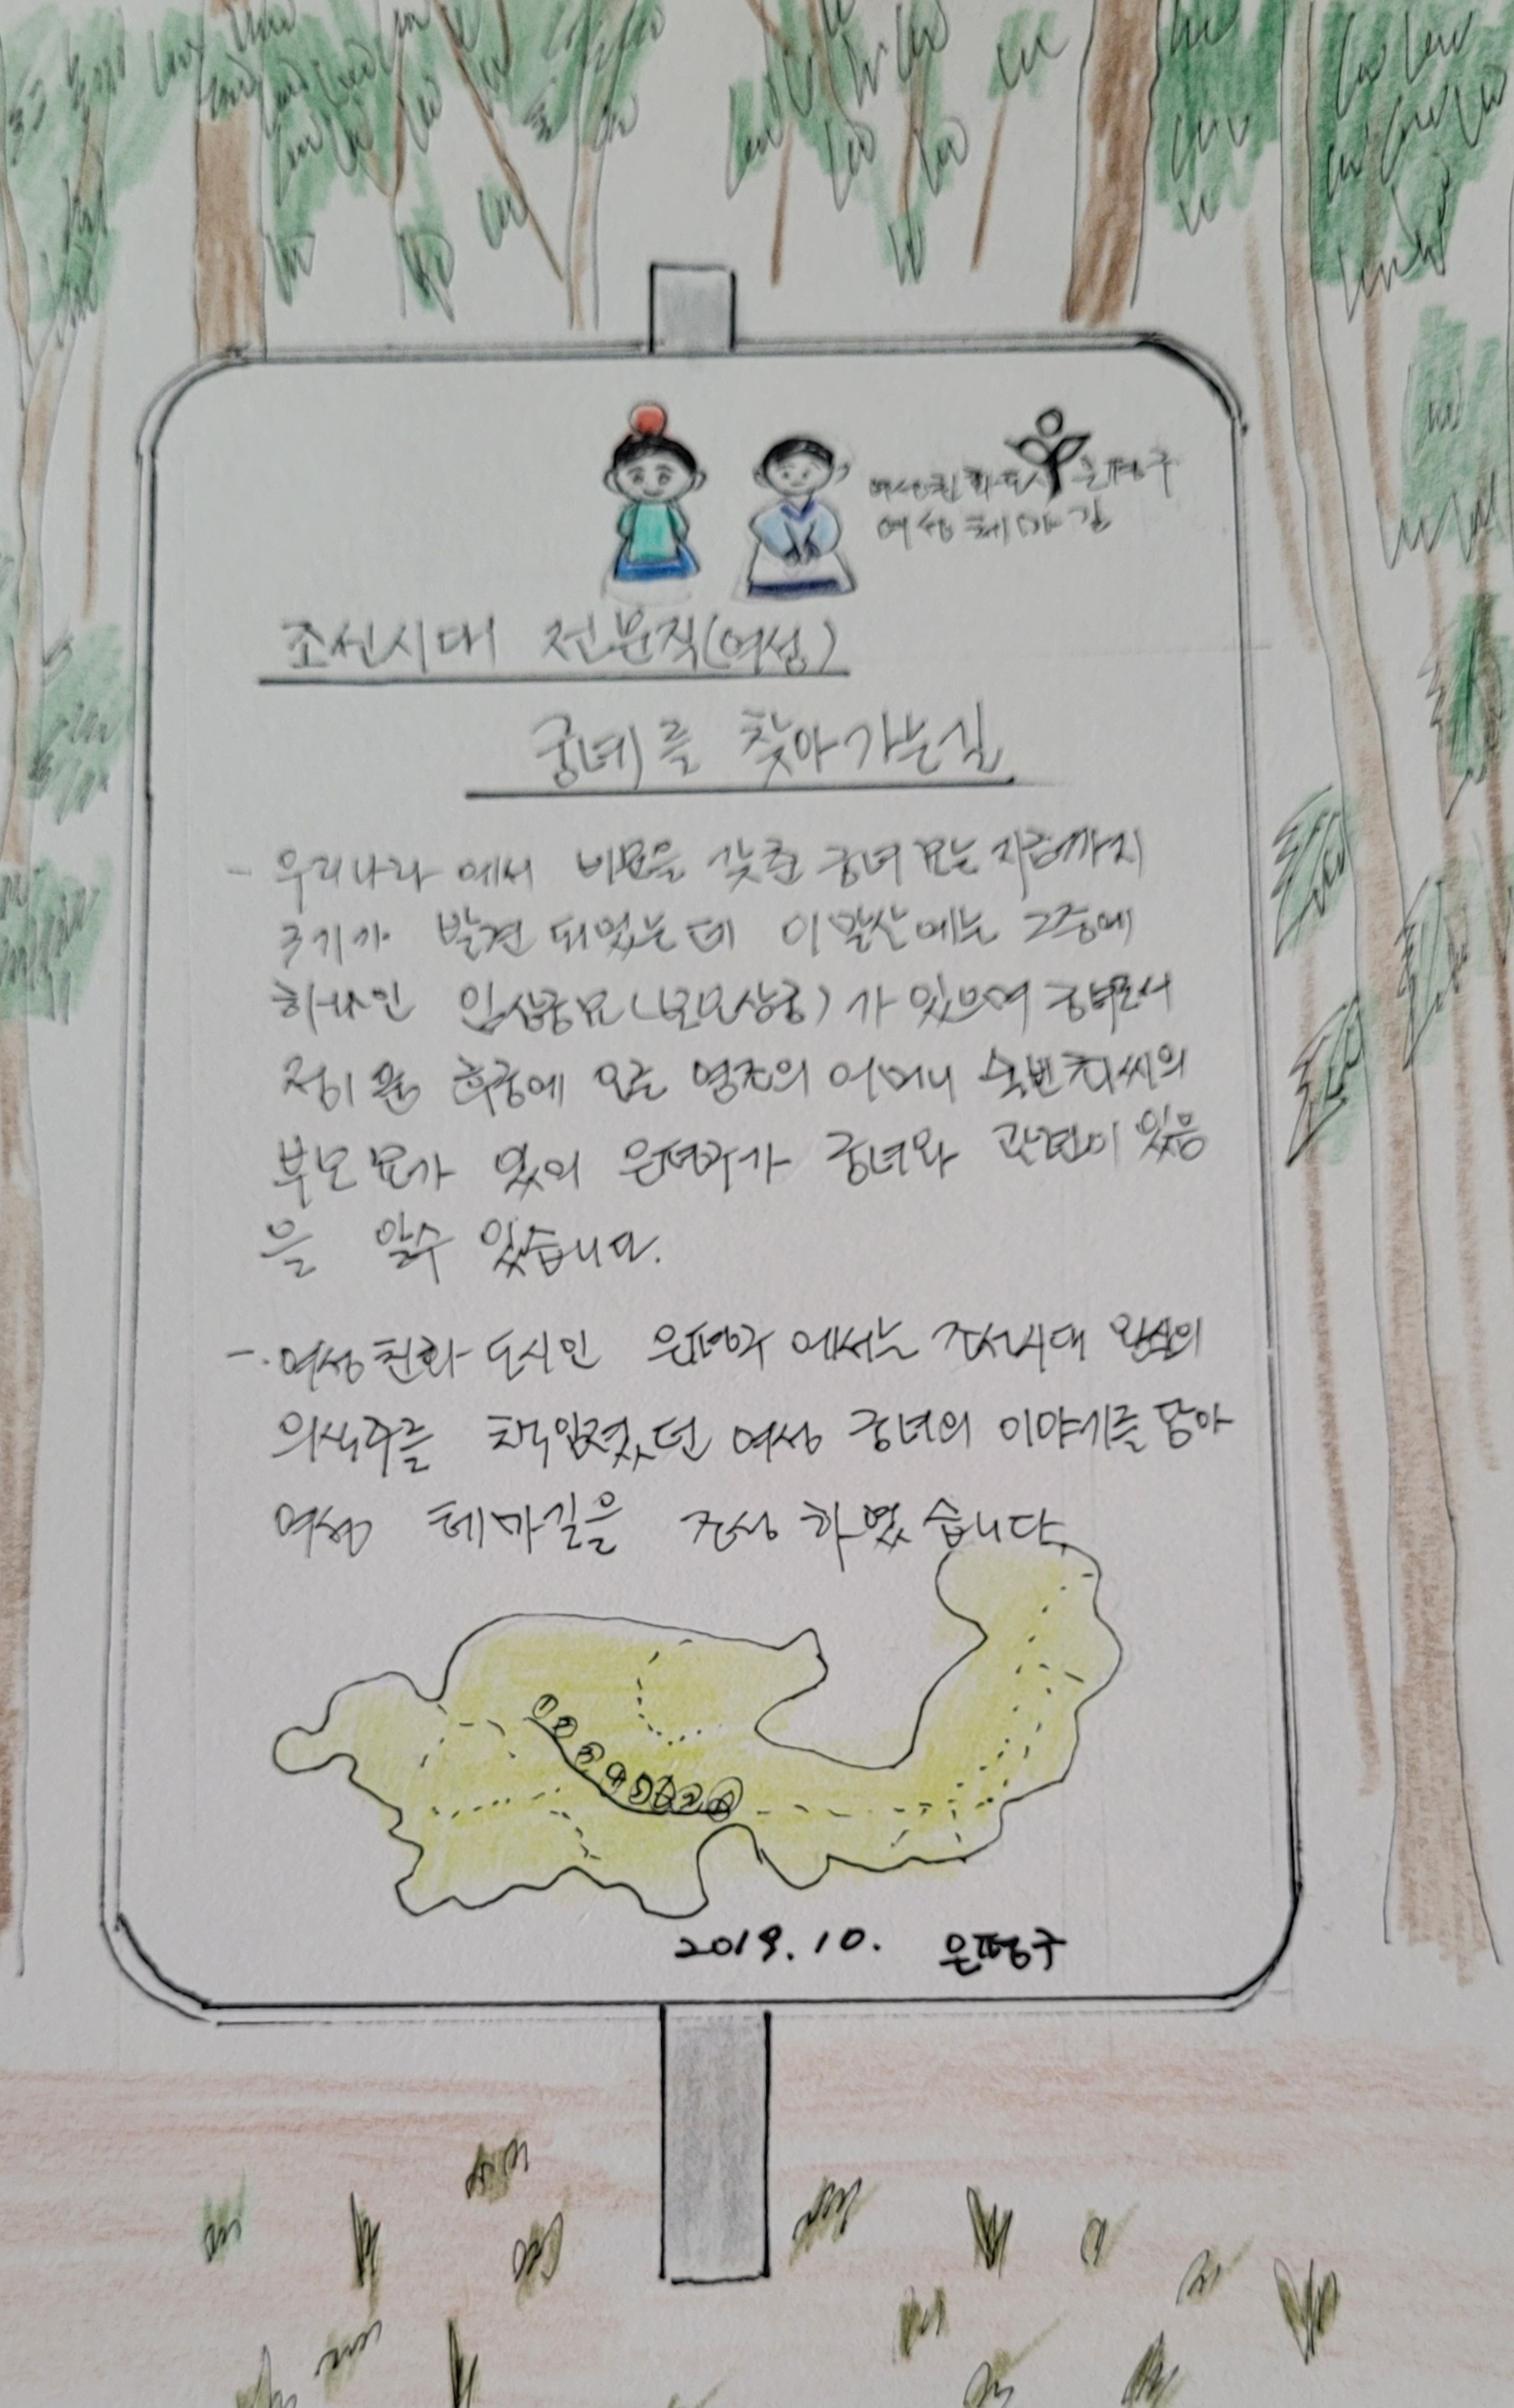 여성친화도시 은평구
여성테마길
조선시대 전문직(여성)
궁녀를 찾아가는길
- 우리나라에서 비묘을 갖춘 궁녀묘는 지금까지
3기가 발견 되었는데 이말산에는 그중에
하나인 임상궁묘(보모상궁)가 있으며 궁녀로서
정1품 후궁에 오른 영조의 어머니 숙빈최씨의
부모묘가 있어 은평구가 궁녀와 관련이 있음
을 알수 있습니다.
-. 여성친화 도시인 은평구에서는 조선시대 왕실의
의식주를 책임졌던 여성 궁녀의 이야기를 담아
여성 테마길을 조성하였습니다.
① ② ③ ④ ⑤ ⑥ ⑦ ⑧
2019. 10. 은평구